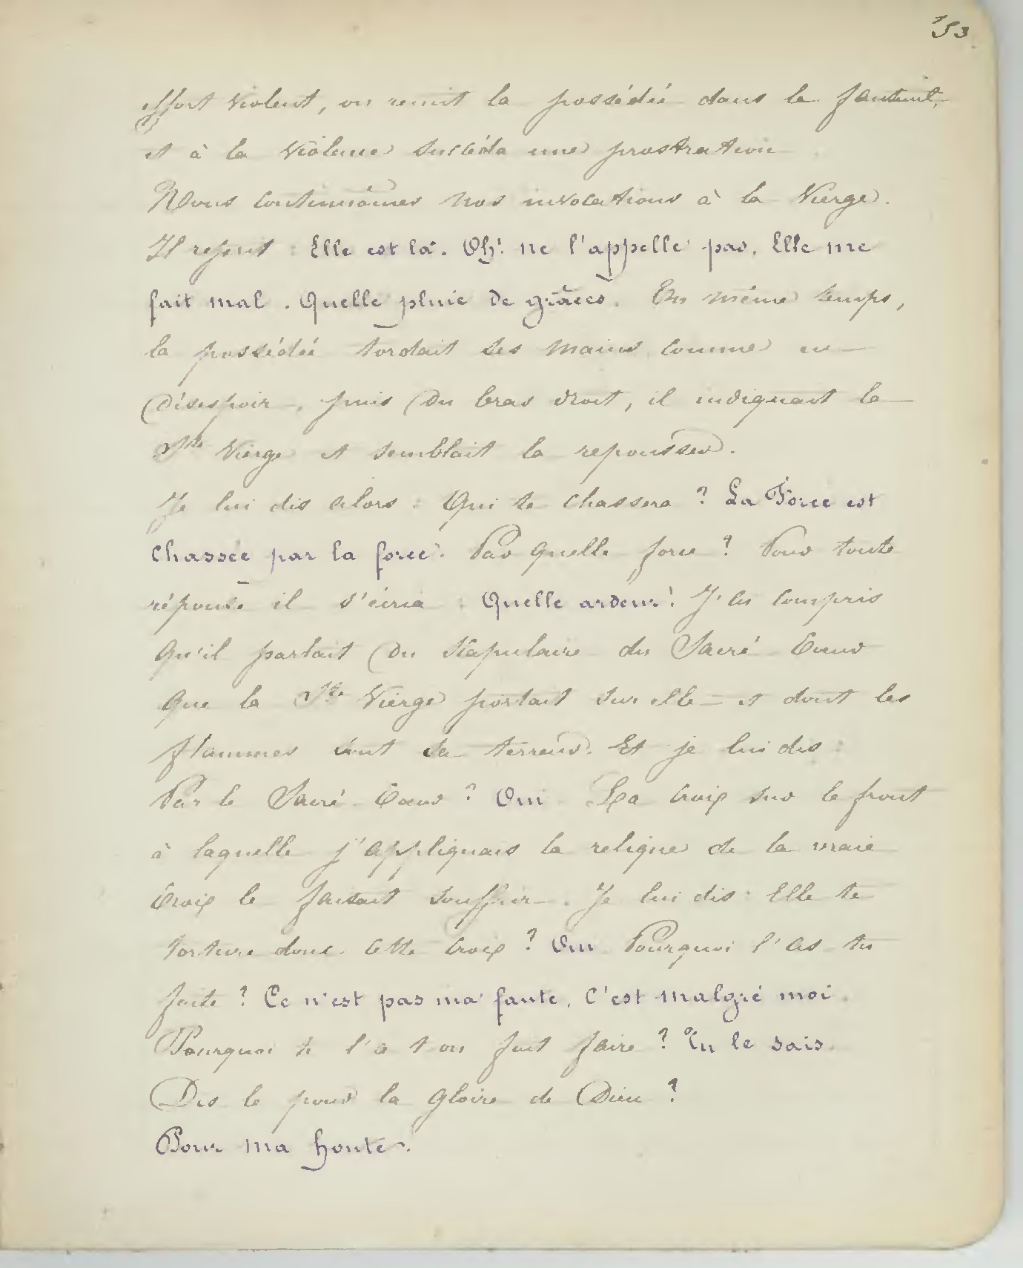 153
effort violent, on remit la possédée dans le fauteuil,
et à la violence succéda une prostration
Nous continuâmes nos invocations à la Vierge.
Il reprit : Elle est là. Oh! ne l'appelle pas. Elle me
fait mal. Quelle pluie de grâces. En même temps,
la possédée tordait ses mains comme en
désespoir, puis du bras droit, il indiquait la
Ste Vierge et semblait la repousser.
Je lui dis alors : Qui te chassera ? La Force est
chassée par la force. Par quelle force ? Pour toute
réponse il s'écria : Quelle ardeur! J'ai compris
qu'il parlait du Scapulaire du Sacré Coeur
que la Ste Vierge portait sur elle et dont les
flammes sont sa terreur. Et je lui dis :
Par le Sacré-Coeur ? Oui La croix sur le front
à laquelle j'appliquais la relique de la vraie
Croix le faisait souffrir. Je lui dis : Elle te
torture donc cette croix ? Oui Pourquoi l'as tu
faite ? Ce n'est pas ma faute, C'est malgré moi.
Pourquoi te l'a t on fait faire ? Tu le sais.
Dis le pour la gloire de Dieu ?
Pour ma honte.